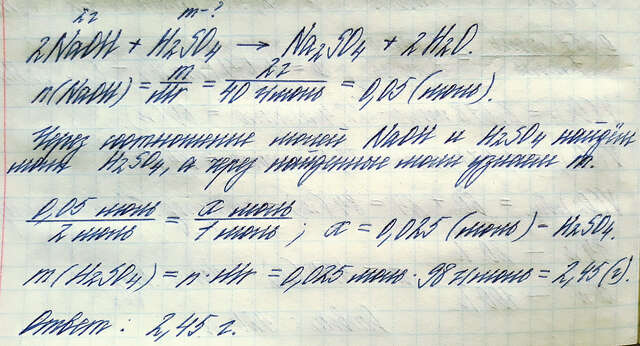 2г m-?
2NaOH + H₂SO₄ → Na₂SO₄ + 2H₂O.
n(NaOH) = m/Mr = 2г/40 г/моль = 0,05 (моль).
Через соотношение молей NaOH и H₂SO₄ найдём
моли H₂SO₄, а через найденные моли узнаем m.
0,05 моль/2 моль = x моль/1 моль; x = 0,025 (моль) - H₂SO₄.
m(H₂SO₄) = n · Mr = 0,025 моль · 98 г/моль = 2,45 (г).
Ответ: 2,45 г.